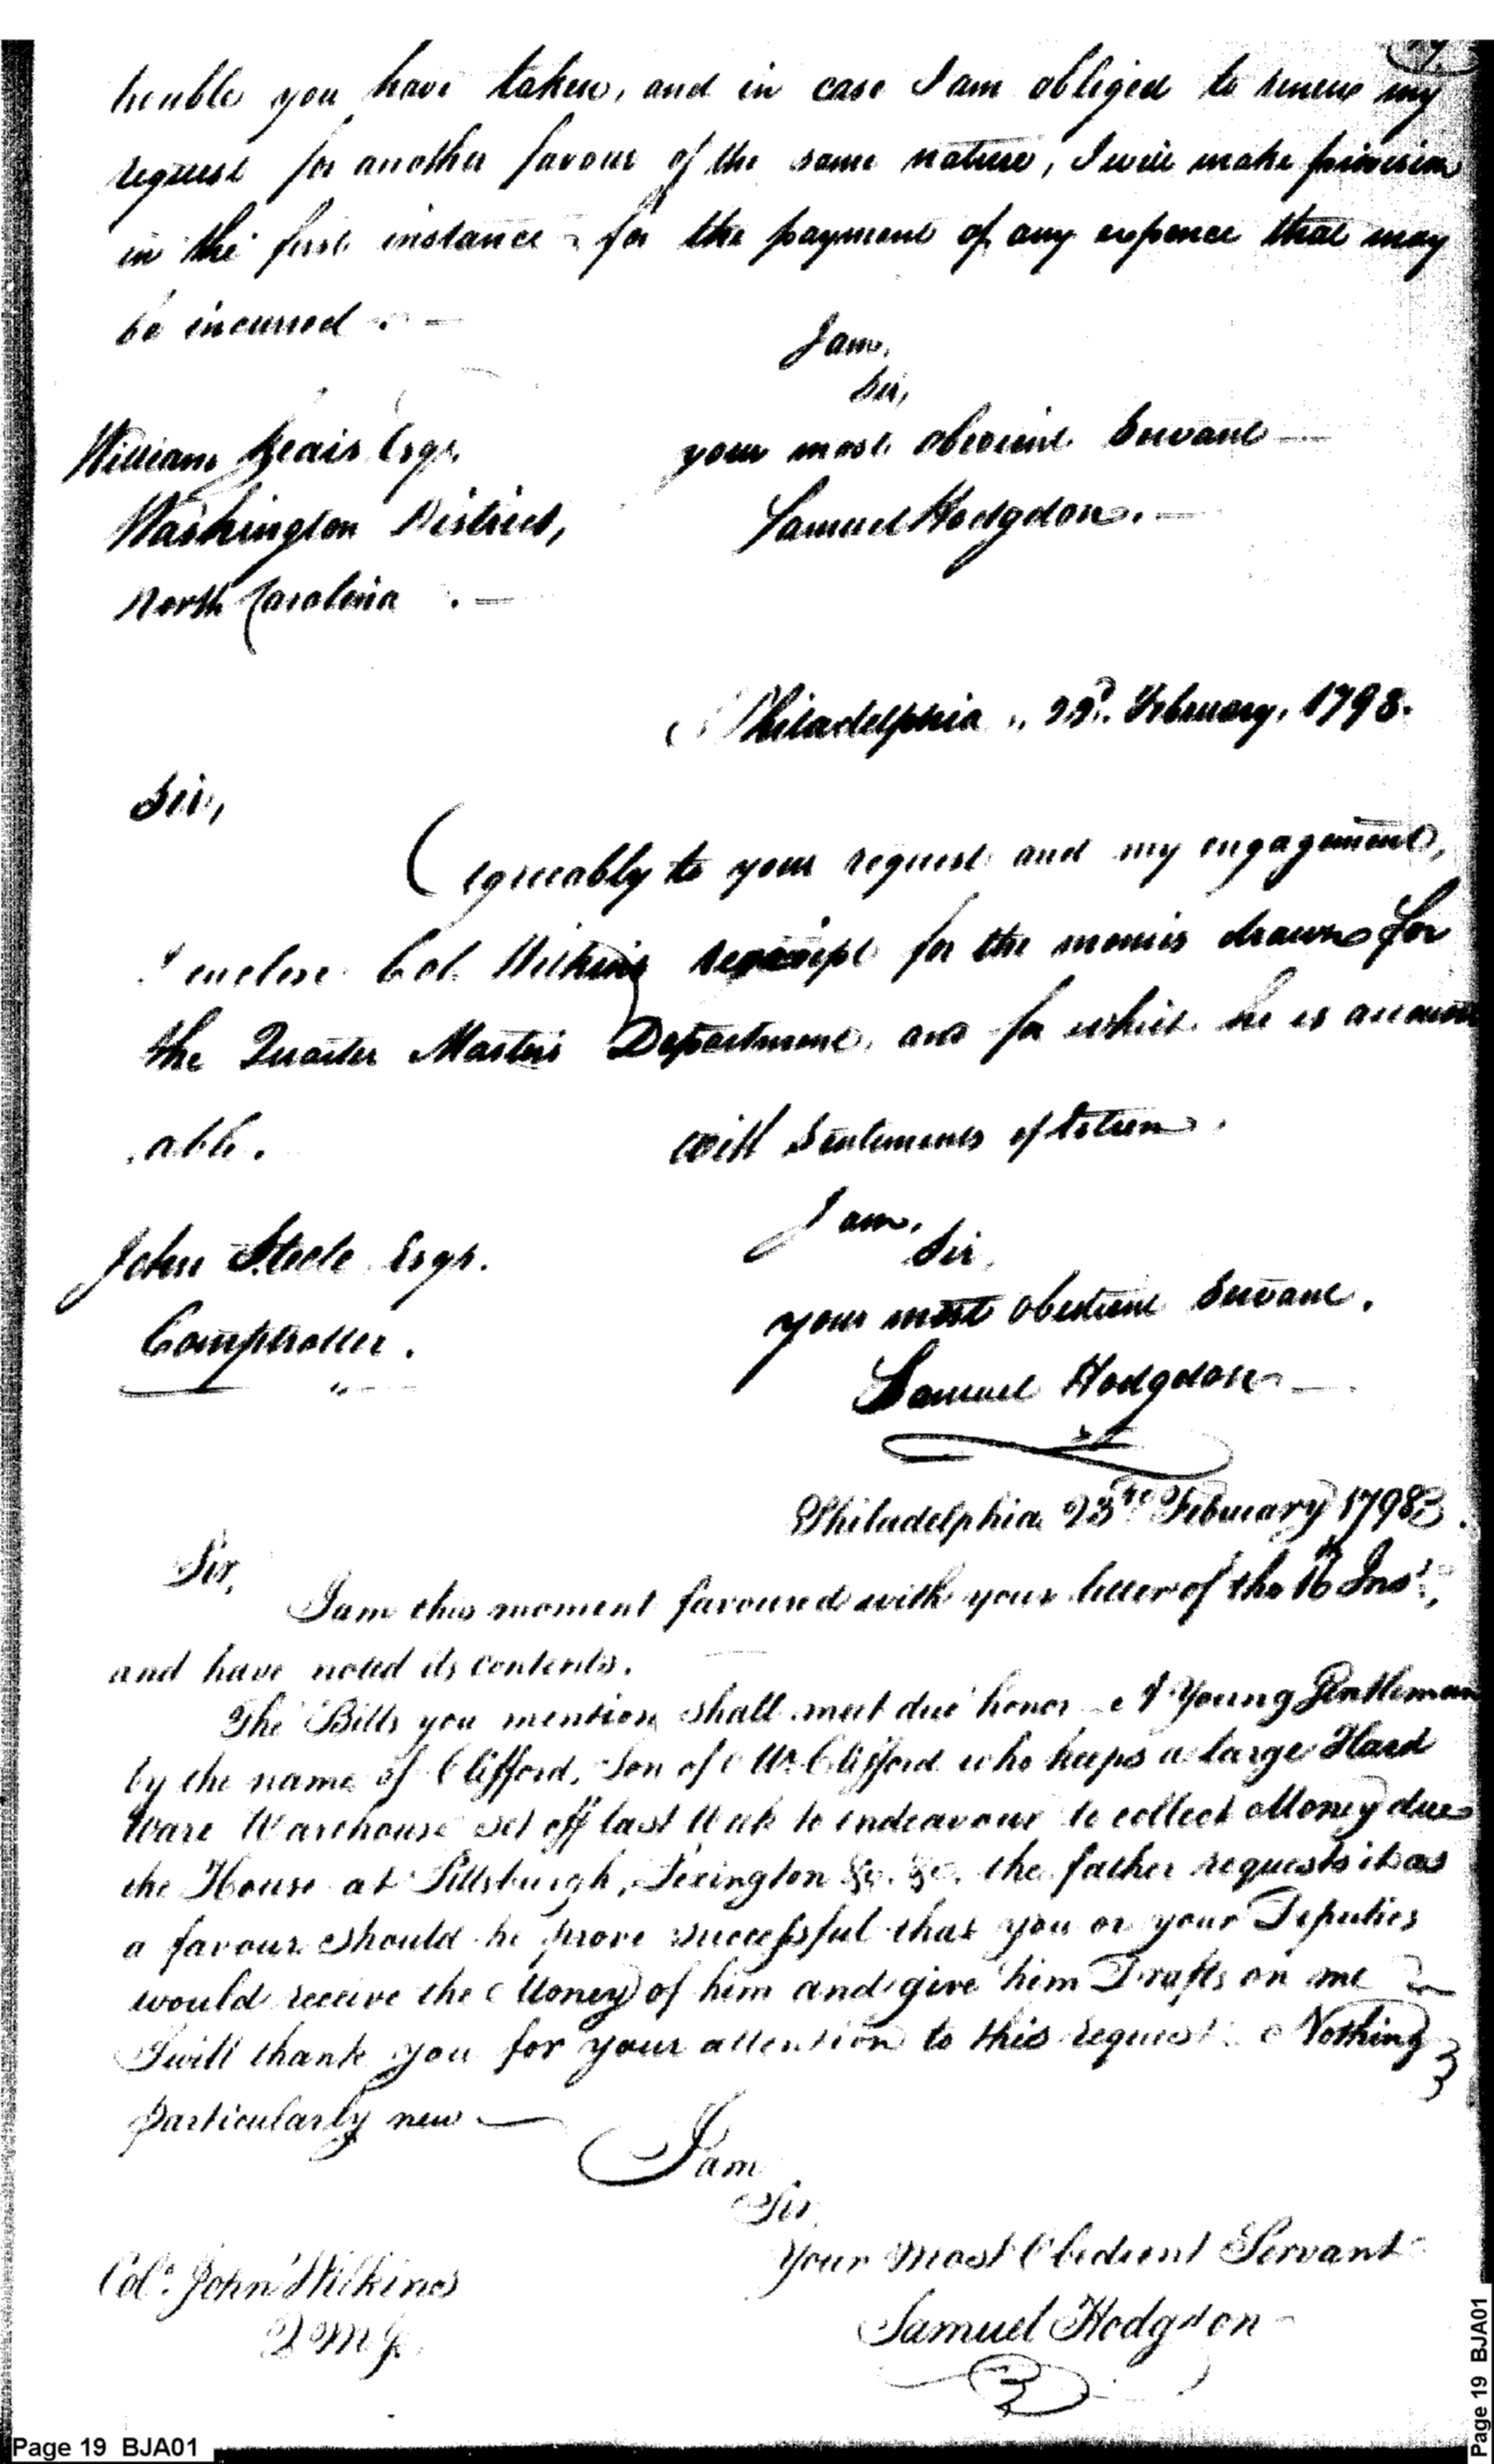 trouble you have taken, and in case I am obliged to renew my
request for another favour of the same nature, I will make provision
in the first instance for the payment of any expence that may
be incurred
I am,
Sir,
your most obedient Servant
Samuel Hodgdon.
William Keais Esqr.
Washington District,
North Carolina
Philadelphia 22d. February, 1798.
Sir,
Agreeably to your request and my engagement,
I enclose Col. Wilkins receipt for the monies drawn for
the Quarter Masters Department, and for which he is account
able.
with Sentiments of Esteem
I am,
Sir,
your most obedient Servant.
Samuel Hodgdon
John Steele Esqr.
Comptroller.
Philadelphia 23rd February 1798
Sir,
I am this moment favoured with your letter of the 16th Inst.,
and have noted its contents.
The Bills you mention shall meet due honor A Young Gentleman
by the name of Clifford, Son of Mr. Clifford who keeps a large Hard
Ware Warehouse set off last Week to endeavour to collect Money due
the House at Pittsburgh, Lexington &c. &c. the father requests it as
a favour should he prove successful that you or your Deputies
would receive the Money of him and give him Drafts on me
I will thank you for your attention to this request. Nothing
particularly new
I am
Sir
Your Most Obedient Servant
Samuel Hodgdon
Colo. John Wilkins
QMG.
Page 19 BJA01
Page 19 BJA01